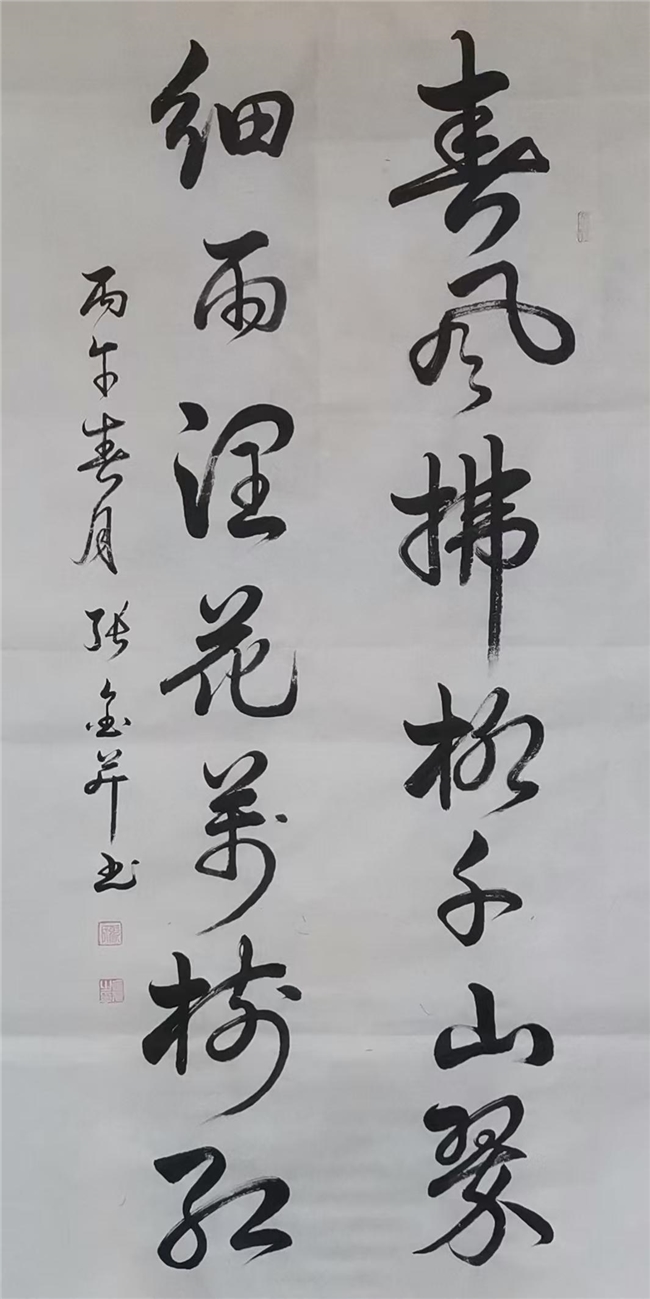 春风拂柳千山翠
细雨润花万樹红
丙午春月 张金芹书